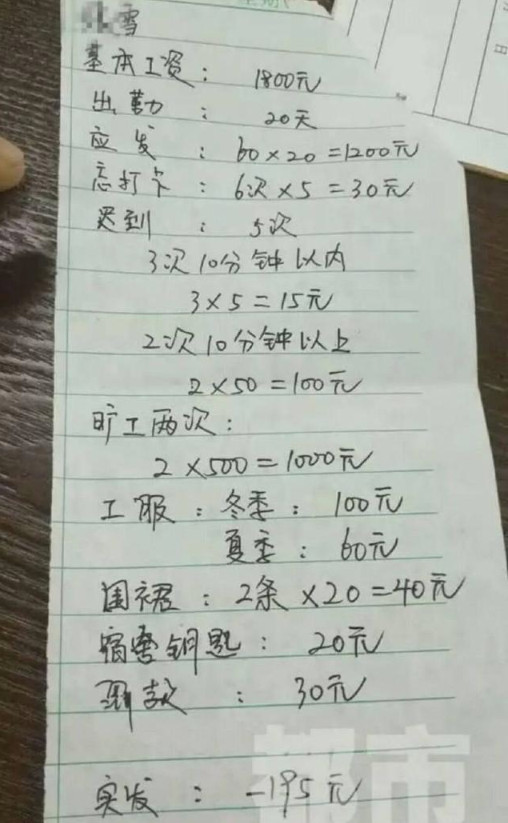 雪
基本工资： 1800元
出勤： 20天
应发： 60×20=1200元
忘打卡：6次×5=30元
迟到： 5次
3次10分钟以内
3×5=15元
2次10分钟以上
2×50=100元
旷工两次：
2×500=1000元
工服：冬季：100元
夏季：60元
围裙：2条×20=40元
宿舍钥匙：20元
罚款： 30元
实发：-195元
都市